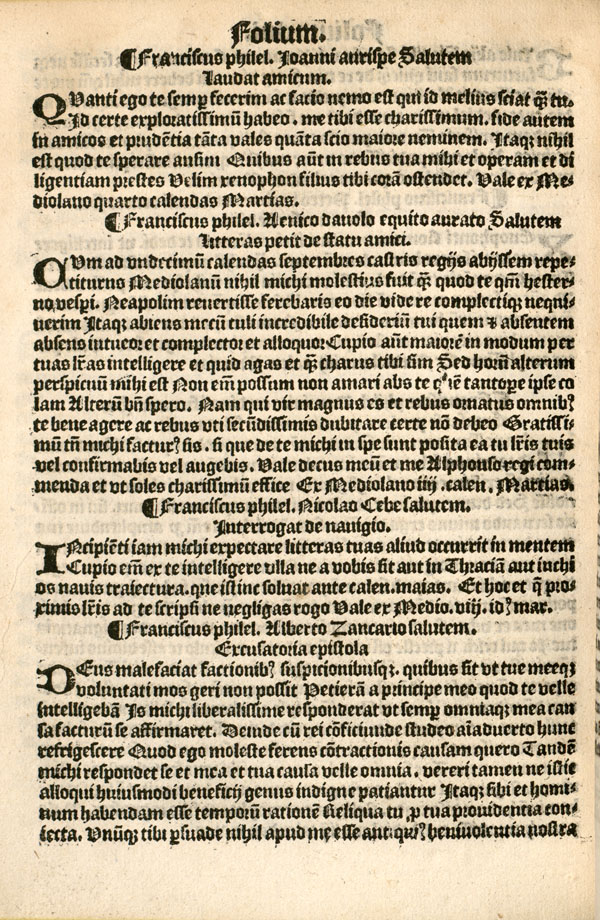 Folium.
¶Franciscus philel. Joanni aurispe Salutem
Laudat amicum.
QVanti ego te semꝑ fecerim ac facio nemo est qui id melius sciat q̃ꝫ tu.
Id certe exploratissimũ habeo. me tibi esse charissimum. fide autem
in amicos et prudẽtia tãta vales quãta scio maiore neminem. Itaqꝫ nihil
est quod te sperare ausim Quibus aũt in rebus tua mihi et operam et di
ligentiam prestes Velim xenophon filius tibi corã ostendet. Vale ex Me-
diolano quarto calendas Martias.
¶Franciscus philel. Aenico davolo equito aurato Salutem
Litteras petit de statu amici.
QVm ad vndecimũ calendas septembres castris regijs abijssem repe-
titurus Mediolanũ nihil michi molestius fuit q̃ꝫ quod te qm̃ hester-
no vespi. Neapolim revertisse ferebaris eo die videre complectiqꝫ nequi-
uerim Itaqꝫ abiens mecũ tuli incredibile desideriũ tui quem ⁊ absentem
absens intueor et complector et alloquor Cupio aũt maiorẽ in modum per
tuas lr̃as intelligere et quid agas et q̃ꝫ charus tibi sim Sed horũ alterum
perspicuũ mihi est Non em̃ possum non amari abs te quẽ tantope ipse co
lam Alterũ bñ spero. Nam qui vir magnus es et rebus ornatus omnibꝰ
te bene agere ac rebus vti secũdissimis dubitare certe nõ debeo Gratissi-
mũ tñ michi facturꝰ sis. si que de te michi in spe sunt posita ea tu lr̃is tuis
vel confirmabis vel augebis. Vale decus meũ et me Alphonso regi com-
menda et vt soles charissimũ effice Ex Mediolano iiij. calen. Martias.
¶Franciscus philel. Nicolao Cebe salutem.
Interrogat de nauigio.
INcipiẽti iam michi expectare litteras tuas aliud occurrit in mentem
Cupio em̃ ex te intelligere vlla ne a vobis sit aut in Thraciã aut inchi
os nauis traiectura. que istinc soluat ante calen. maias. Et hoc et q̃ pro-
ximis lr̃is ad te scripsi ne negligas rogo Vale ex Medio. viij. idꝰ mar.
¶Franciscus philel. Alberto Zancario salutem.
Excusatoria epistola
DEus malefaciat factionibꝰ suspicionibusqꝫ. quibus fit vt tue meeqꝫ
voluntati mos geri non possit Petierã a principe meo quod te velle
intelligebã Is michi liberalissime responderat vt semꝑ omniaqꝫ mea cau
sa facturũ se affirmaret. Deinde cũ rei cõficiunde studeo aĩaduerto hunc
refrigescere Quod ego moleste ferens cõtractionis causam quero Tandẽ
michi respondet se et mea et tua causa velle omnia. vereri tamen ne istic
alloqui huiusmodi beneficij genus indigne patiantur Itaqꝫ sibi et homi-
num habendam esse temporũ rationẽ Reliqua tu ꝓ tua prouidentia con-
iecta. Vnũqꝫ tibi ꝑsuade nihil apud me esse antiquiꝰ beniuolentia nostra